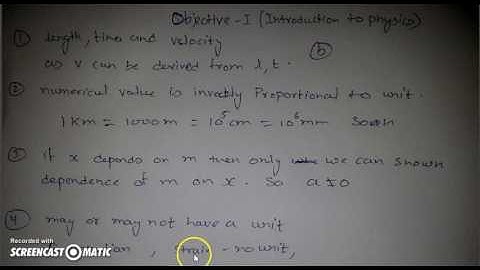 Objective - I (Introduction to physics)
① length, time and velocity
as v can be derived from l, t.
ⓑ
② numerical value is inversely Proportional to unit.
1 Km = 1000 m = 10⁵ cm = 10⁶ mm
③ if x depends on m then only we can shown
dependence of m on x. So a ≠ 0
④ may or may not have a unit
, strain - no unit,
Recorded with
SCREENCAST-O-MATIC